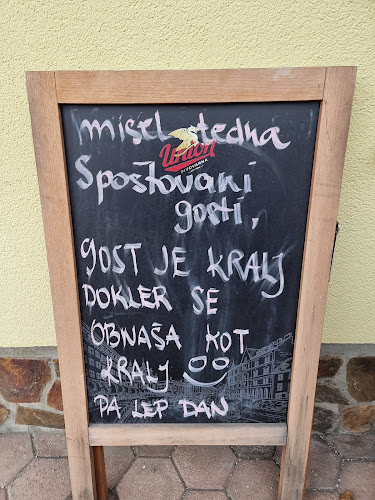 misel tedna
Union
PIVOVARNA
Spoštovani
gosti,
GOST JE KRALJ
DOKLER SE
OBNAŠA KOT
KRALJ
PA LEP DAN